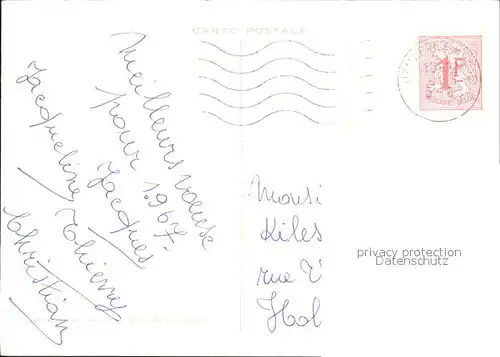 CARTE POSTALE
Meilleurs vœux
pour 1.967.
Jacques
Jacqueline, Thierry
Christian
1F
Monsi
Kiles
rue
Hol
privacy protection
Datenschutz